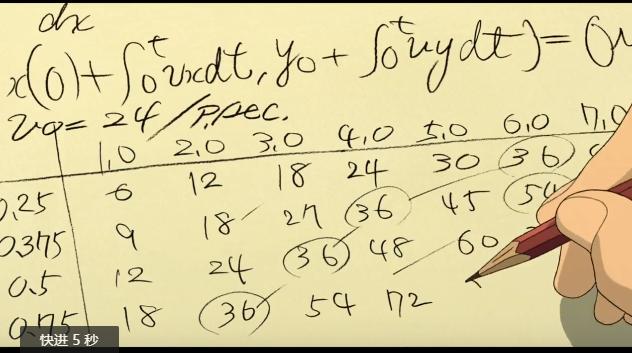 dx
x(0)+∫₀ᵗvxdt, y₀+∫₀ᵗvydt)=(
v₀=24/p.sec.
1,0 2,0 3,0 4,0 5,0 6,0 7,0
0,25 6 12 18 24 30 36
0.375 9 18 27 36 45 54
0.5 12 24 36 48 60
0.75 18 36 54 72
快进 5 秒